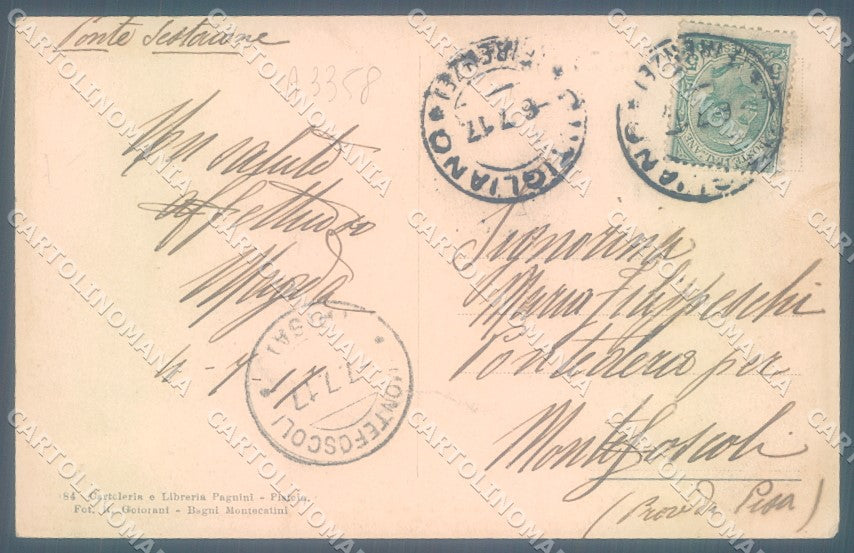 Ponte Sestaione
A3358
Un saluto
affettuoso
Magda
4-7-17
CUTIGLIANO
(FIRENZE)
6.7.17
Signorina
Maria Filippeschi
Pontedera per
Montefoscoli
(Prov di Pisa)
MONTEFOSCOLI
(PISA)
7.7.17
84 Cartoleria e Libreria Pagnini - Pistoia.
Fot. Bagni Montecatini
CARTOLINOMANIA